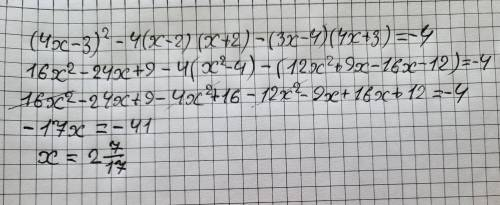 (4x-3)² - 4(x-2)(x+2) - (3x-4)(4x+3) = -4
16x² - 24x + 9 - 4(x² - 4) - (12x² + 9x - 16x - 12) = -4
16x² - 24x + 9 - 4x² + 16 - 12x² - 9x + 16x + 12 = -4
-17x = -41
x = 2 7/17